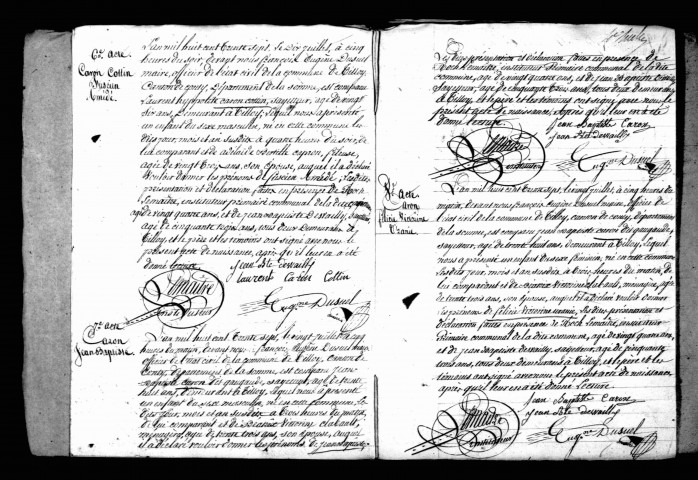 6e acte
Caron Cottin
Lucien
Amédé
L'an mil huit cent trente sept, le dix juillet, à cinq
heures du soir, devant nous françois Eugène Dusuel
maire, officier de l'état civil de la commune de Tilloy
Canton de conty, Département de la somme, est comparu
Laurent hyppolitte caron cottin, sayetteur, agé de vingt
six ans, Demeurant à Tilloy; lequel nous a présenté
un enfant du sexe masculin, né en cette commune les
dits jour, mois et an susdits à quatre heures du soir, de
lui comparant et de
agée de vingt trois ans, son épouse, auquel il a déclaré
vouloir donner les prénoms de Lucien Amédé; lesdites
présentation et déclaration faites en présence de Roch
Lemaitre, instituteur primaire communal de la dite commune
agé de vingt quatre ans, et de jean baptiste Devailly, sayetteur
agé de cinquante trois ans, tous deux demeurant à
Tilloy, et le père et les témoins ont signé avec nous le
présent acte de naissance, après qu'il leur en a été
donné lecture.
Jean Bte Devailly
Laurent Caron Cottin
Lemaitre
instituteur
Eug.ne Dusuel
7e acte
Caron
Jean Baptiste
L'an mil huit cent trente sept, le vingt juillet à cinq
heures du matin, devant nous françois Eugène Dusuel maire
officier de l'état civil de la commune de Tilloy, canton de
Conty, département de la somme, est comparu jean
baptiste caron des gaugauds, sayetteur, agé de trente
huit ans, demeurant à Tilloy, lequel nous a présenté
un enfant du sexe masculin, né en cette commune, les
dits jour, mois et an susdits à trois heures du matin,
de lui comparant et de
ménagère, agée de trente trois ans, son épouse, auquel
il a déclaré vouloir donner les prénoms de jean baptiste;
lesdites présentation et déclaration faites en présence de
Roch Lemaitre, instituteur Primaire communal de la dite
commune, agé de vingt quatre ans, et de jean baptiste Devailly
sayetteur, agé de cinquante trois ans, tous deux demeurant
à Tilloy, et le père et les témoins ont signé avec nous le
présent acte de naissance, après qu'il leur en a été
donné lecture.
Jean Baptiste Caron
Jean Bte Devailly
Lemaitre
instituteur
Eug.ne Dusuel
8e acte
Caron
félicie Victorine
L'an mil huit cent trente sept, le vingt juillet, à cinq heures du
matin, devant nous françois Eugène Dusuel maire, officier de
l'état civil de la commune de Tilloy, canton de conty, département
de la somme, est comparu jean baptiste caron des gaugauds,
sayetteur, agé de trente huit ans, demeurant à Tilloy, lequel
nous a présenté un enfant du sexe féminin, né en cette commune
les dits jour, mois et an susdits, à trois heures du matin, de
lui comparant et de
de trente trois ans, son épouse, auquel il a déclaré vouloir donner
les prénoms de félicie Victorine; les dites présentation et
déclaration faites en présence de Roch Lemaitre, instituteur
Primaire communal de la dite commune, agé de vingt quatre ans,
et de jean baptiste devailly, sayetteur, agé de cinquante
trois ans, tous deux demeurant à Tilloy, et le père et les
témoins ont signé avec nous le présent acte de naissance
après qu'il leur en a été donné lecture
Jean Baptiste Caron
Jean Bte Devailly
Lemaitre
instituteur
Eug.ne Dusuel